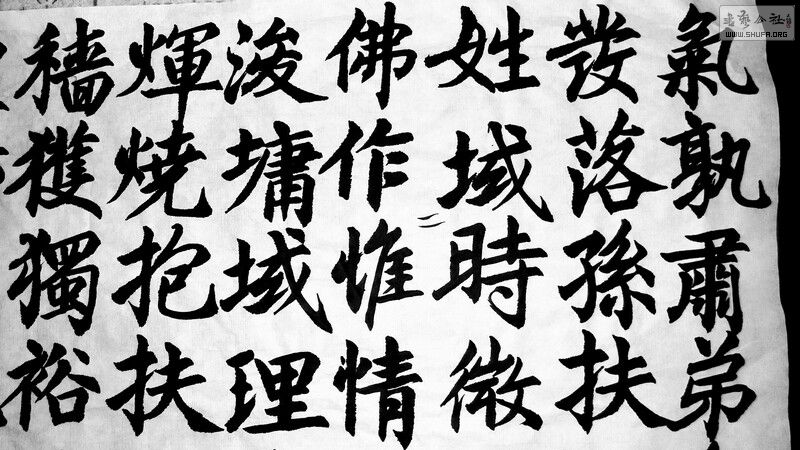 氣孰肅弟
發落孫扶
姓域時微
佛作惟情
浚墉域理
煇燒抱扶
穡獲獨裕
WWW.SHUFA.ORG